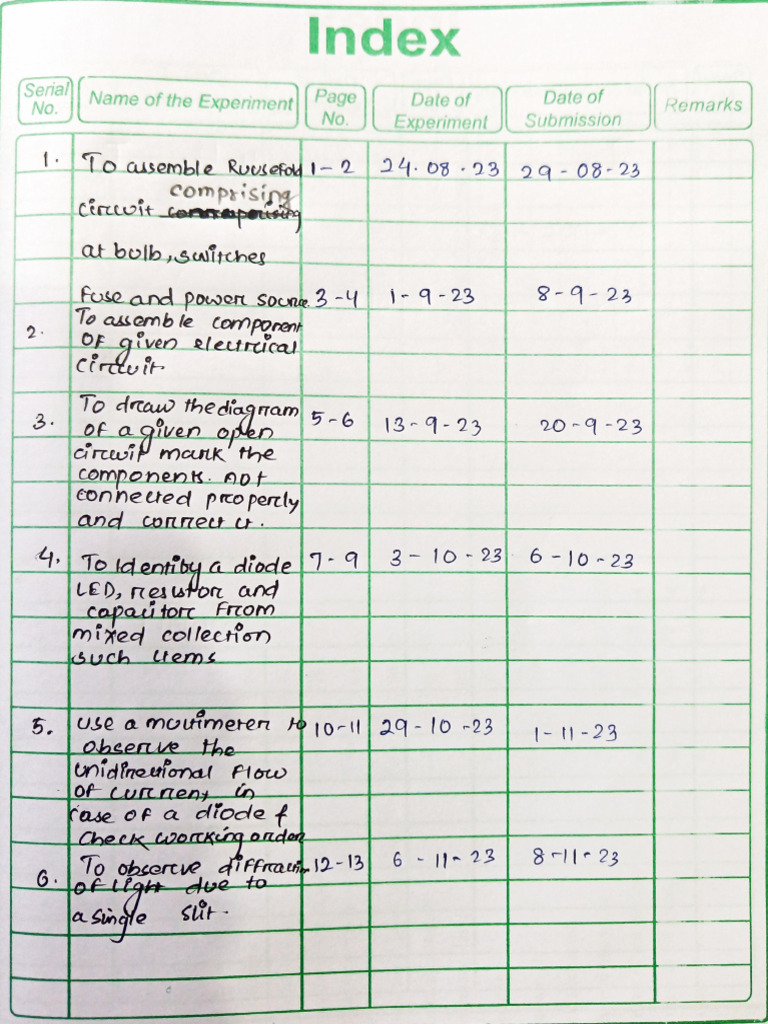 Index
Serial No. Name of the Experiment Page No. Date of Experiment Date of Submission Remarks
1. To assemble Household 1-2 24.08.23 29-08-23
comprising
circuit
at bulb, switches
Fuse and power source 3-4 1-9-23 8-9-23
To assemble component
2. OF given electrical
circuit.
To draw the diagram
3. of a given open 5-6 13-9-23 20-9-23
circuit mark the
components. not
connected properly
and correct it.
4. To Identiby a diode 7-9 3-10-23 6-10-23
LED, resistor and
capacitor From
mixed collection
such Items
5. Use a moltimeter to 10-11 29-10-23 1-11-23
observe the
Unidirectional Flow
of current, in
case of a diode &
Check working order
To observe diffraction 12-13 6-11-23 8-11-23
6. of light due to
a single slit.